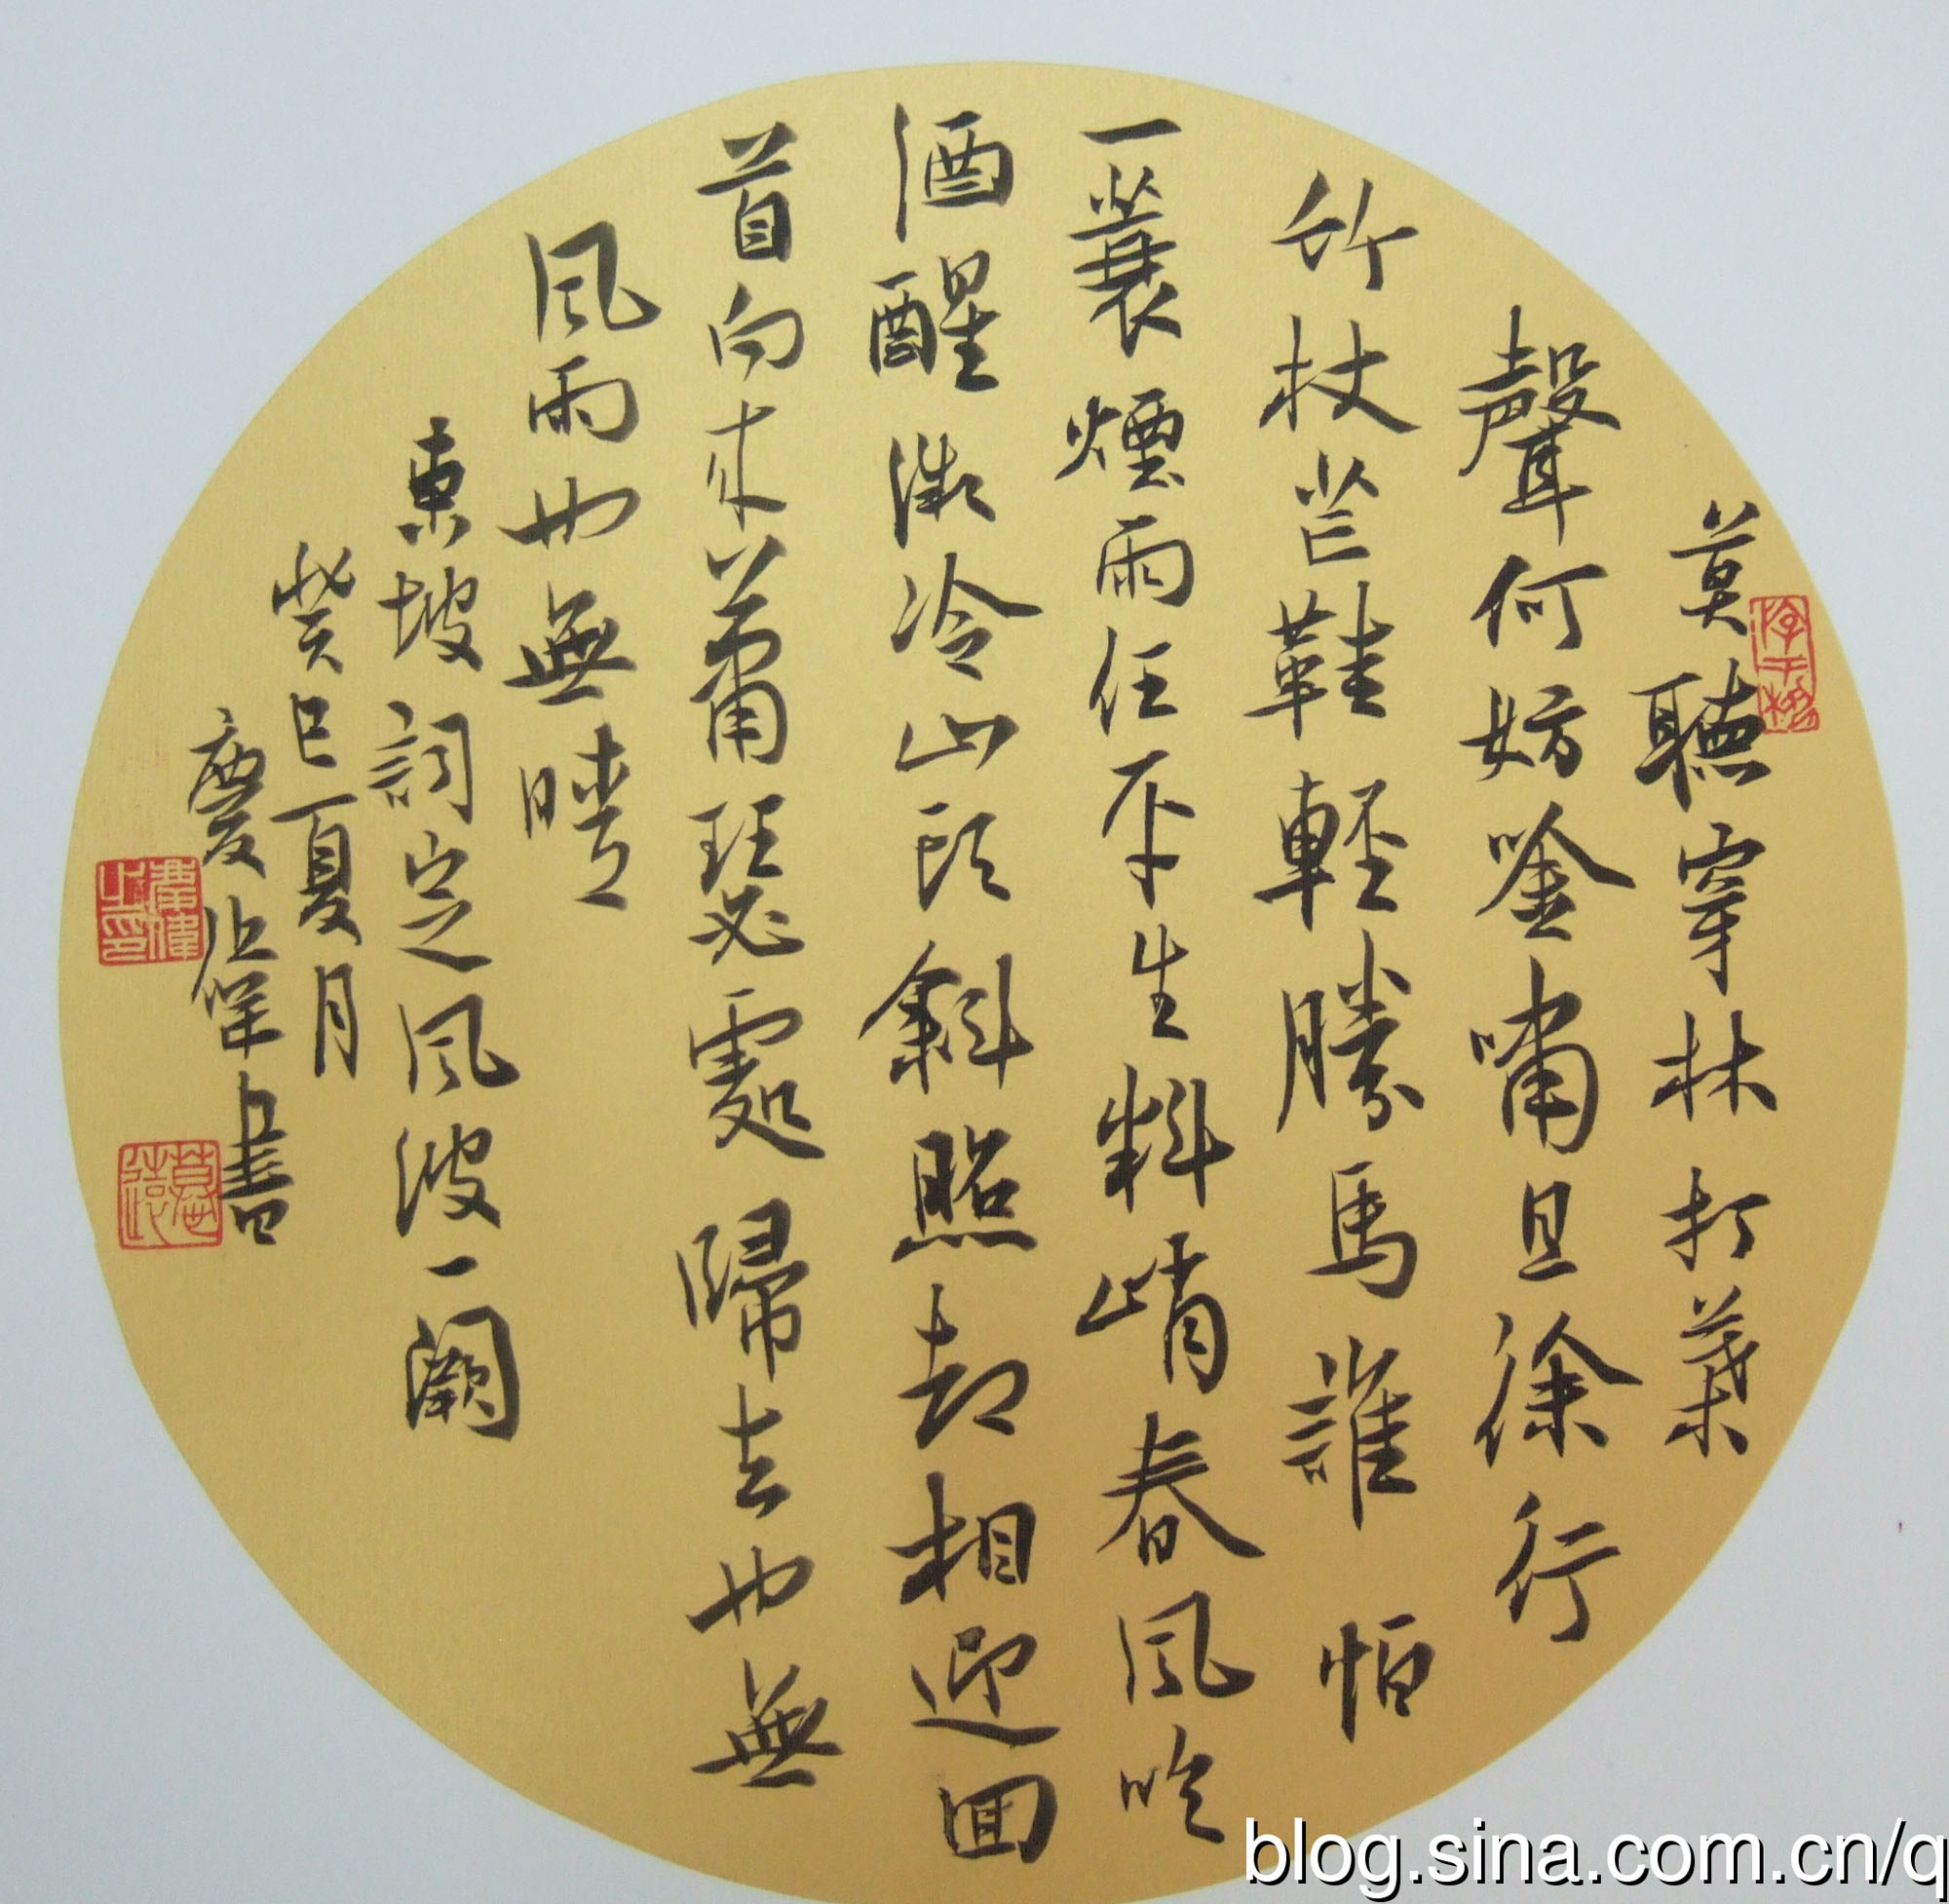 莫聽穿林打葉
聲何妨唫嘯且徐行
竹杖芒鞋輕勝馬誰怕
一蓑煙雨任平生料峭春風吹
酒醒微冷山頭斜照却相迎回
首向來蕭瑟處歸去也無
風雨也無晴
東坡詞定風波一闋
癸巳夏月
慶偉書
blog.sina.com.cn/q